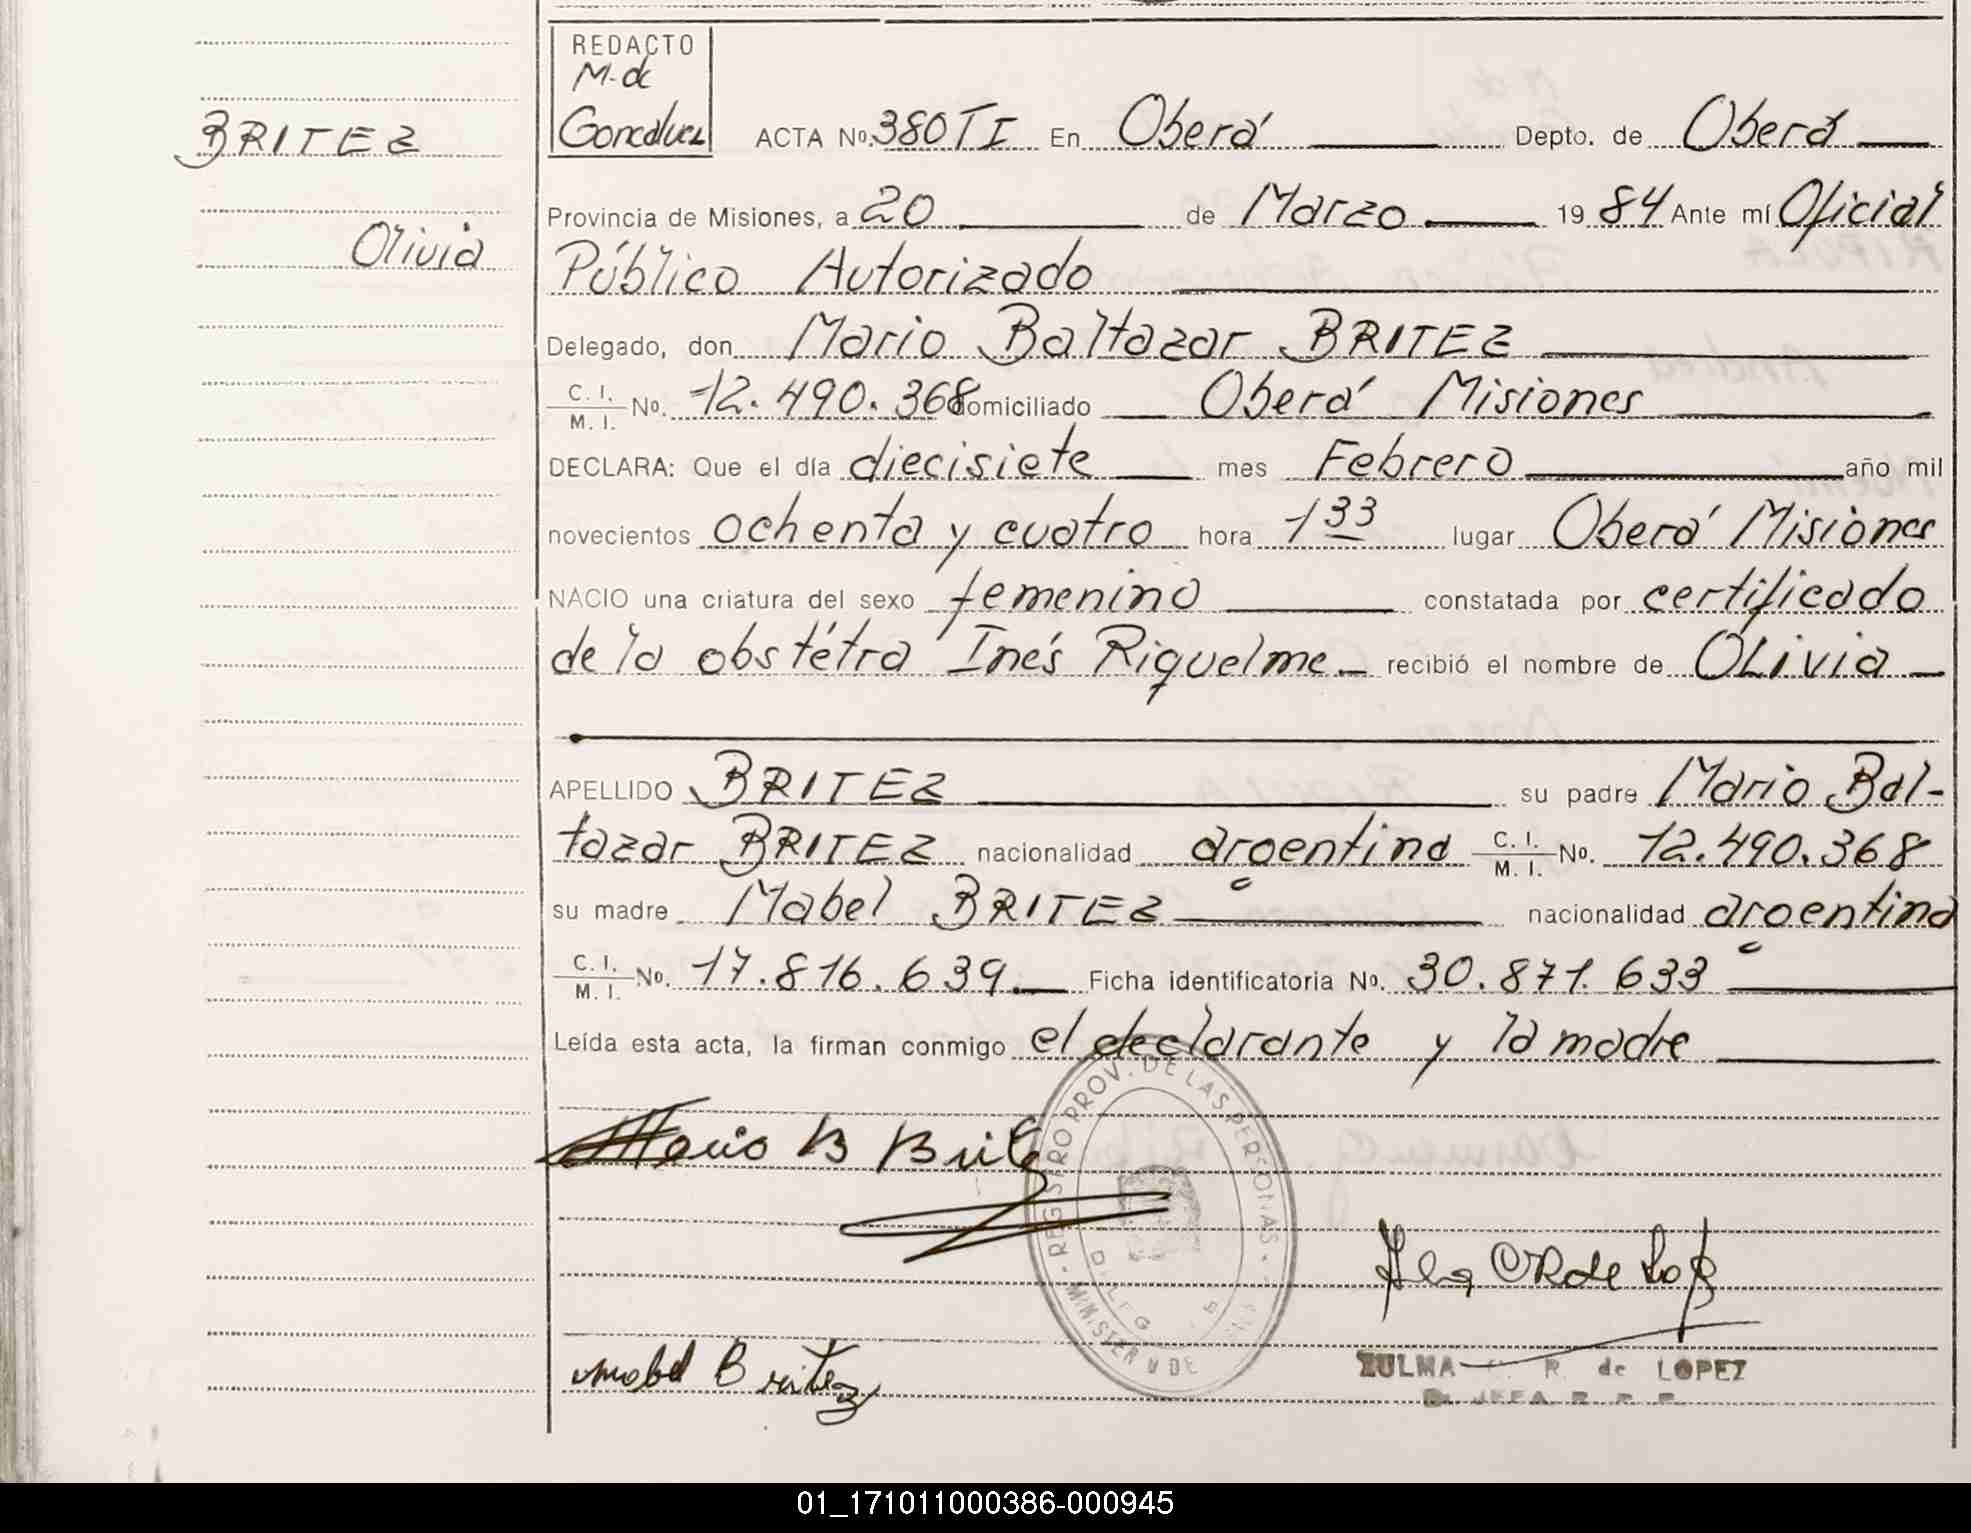 REDACTO
M. de
Goncalvez
BRITEZ
Olivia
ACTA Nº. 380 TI En Oberá Depto. de Oberá
Provincia de Misiones, a 20 de Marzo 19 84 Ante mí Oficial
Público Autorizado
Delegado, don Mario Baltazar BRITEZ
C. I. / M. I. Nº. 12.490.368 domiciliado Oberá Misiones
DECLARA: Que el día diecisiete mes Febrero año mil
novecientos ochenta y cuatro hora 1 33 lugar Oberá Misiones
NACIO una criatura del sexo femenino constatada por certificado
de la obstétra Inés Riquelme.- recibió el nombre de OLivia
APELLIDO BRITEZ su padre Mario Bal-
tazar BRITEZ nacionalidad argentina C. I. / M. I. Nº. 12.490.368
su madre Mabel BRITEZ nacionalidad argentina
C. I. / M. I. Nº. 17.816.639. Ficha identificatoria Nº. 30.871.633
Leída esta acta, la firman conmigo el declarante y la madre
REGISTRO PROV. DE LAS PERSONAS
Mario B Britez
Mabel Britez
ZULMA R. de LOPEZ
JEFA R. P. P.
01_171011000386-000945